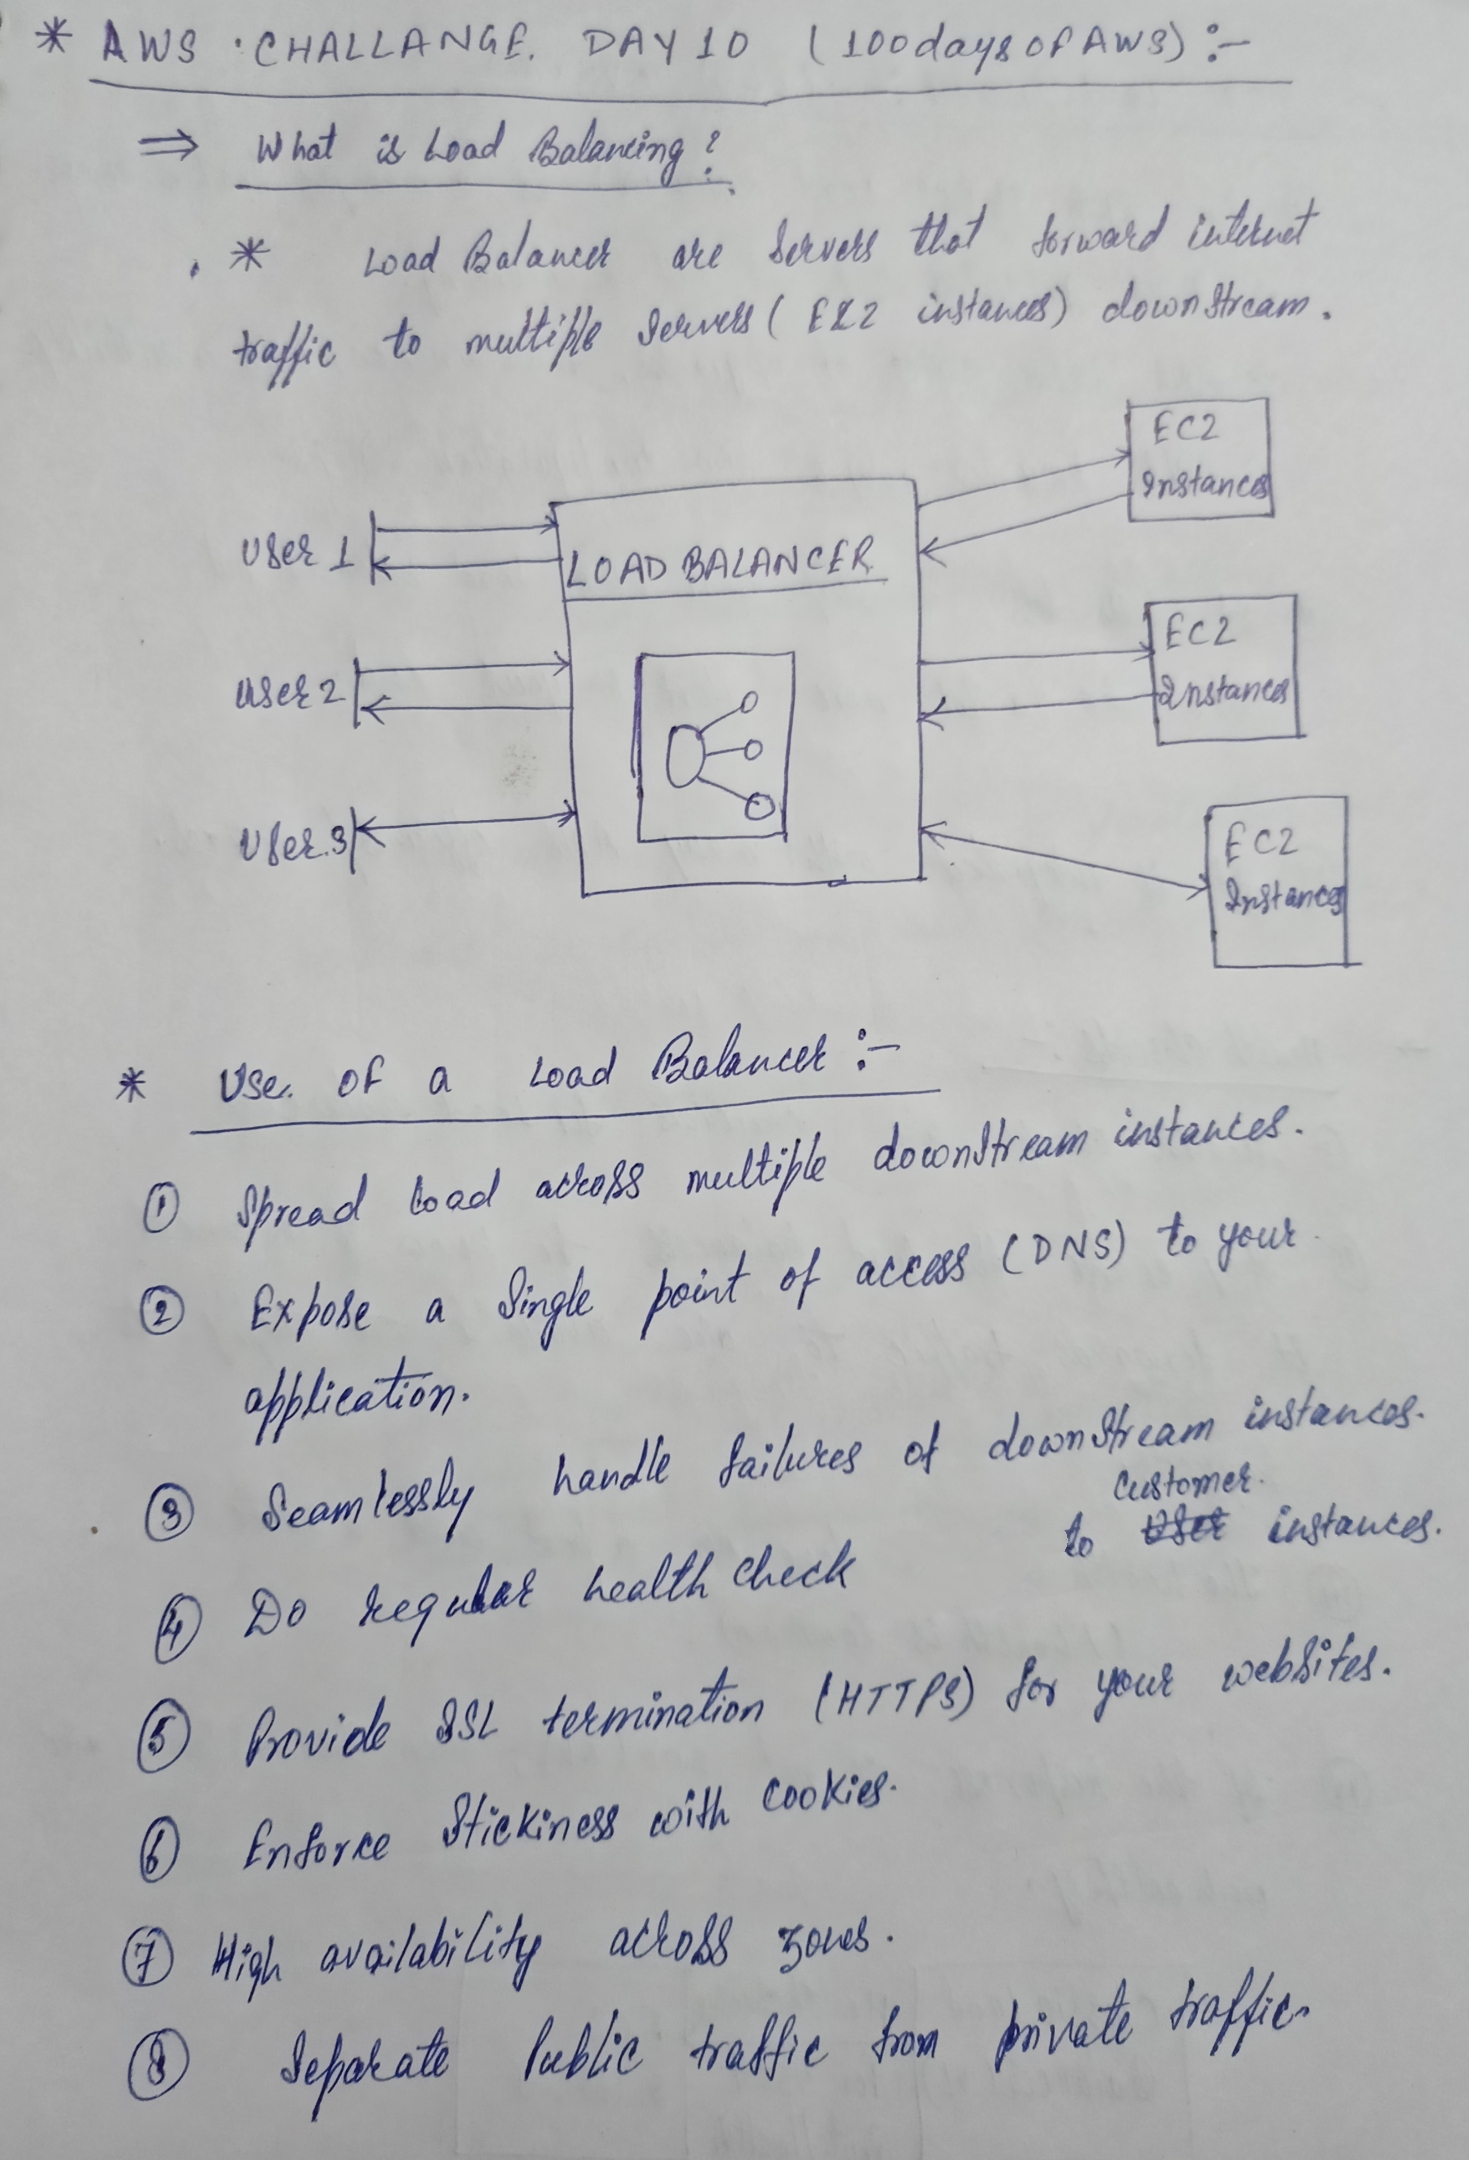 * AWS . CHALLANGE. DAY 10 (100daysofAWS) :-
⇒ What is Load Balancing?
* Load Balancer are servers that forward internet
traffic to multiple servers (EC2 instances) downstream.
EC2
Instances
User 1
LOAD BALANCER
EC2
Instances
User 2
User.3
EC2
Instances
* Use. of a Load Balancer :-
① Spread load across multiple downstream instances.
② Expose a single point of access (DNS) to your
application.
③ Seamlessly handle failures of downstream instances.
customer.
④ Do regular health check to User instances.
⑤ Provide SSL termination (HTTPS) for your websites.
⑥ Enforce Stickiness with cookies.
⑦ High availability across zones.
⑧ Separate Public traffic from private traffic.